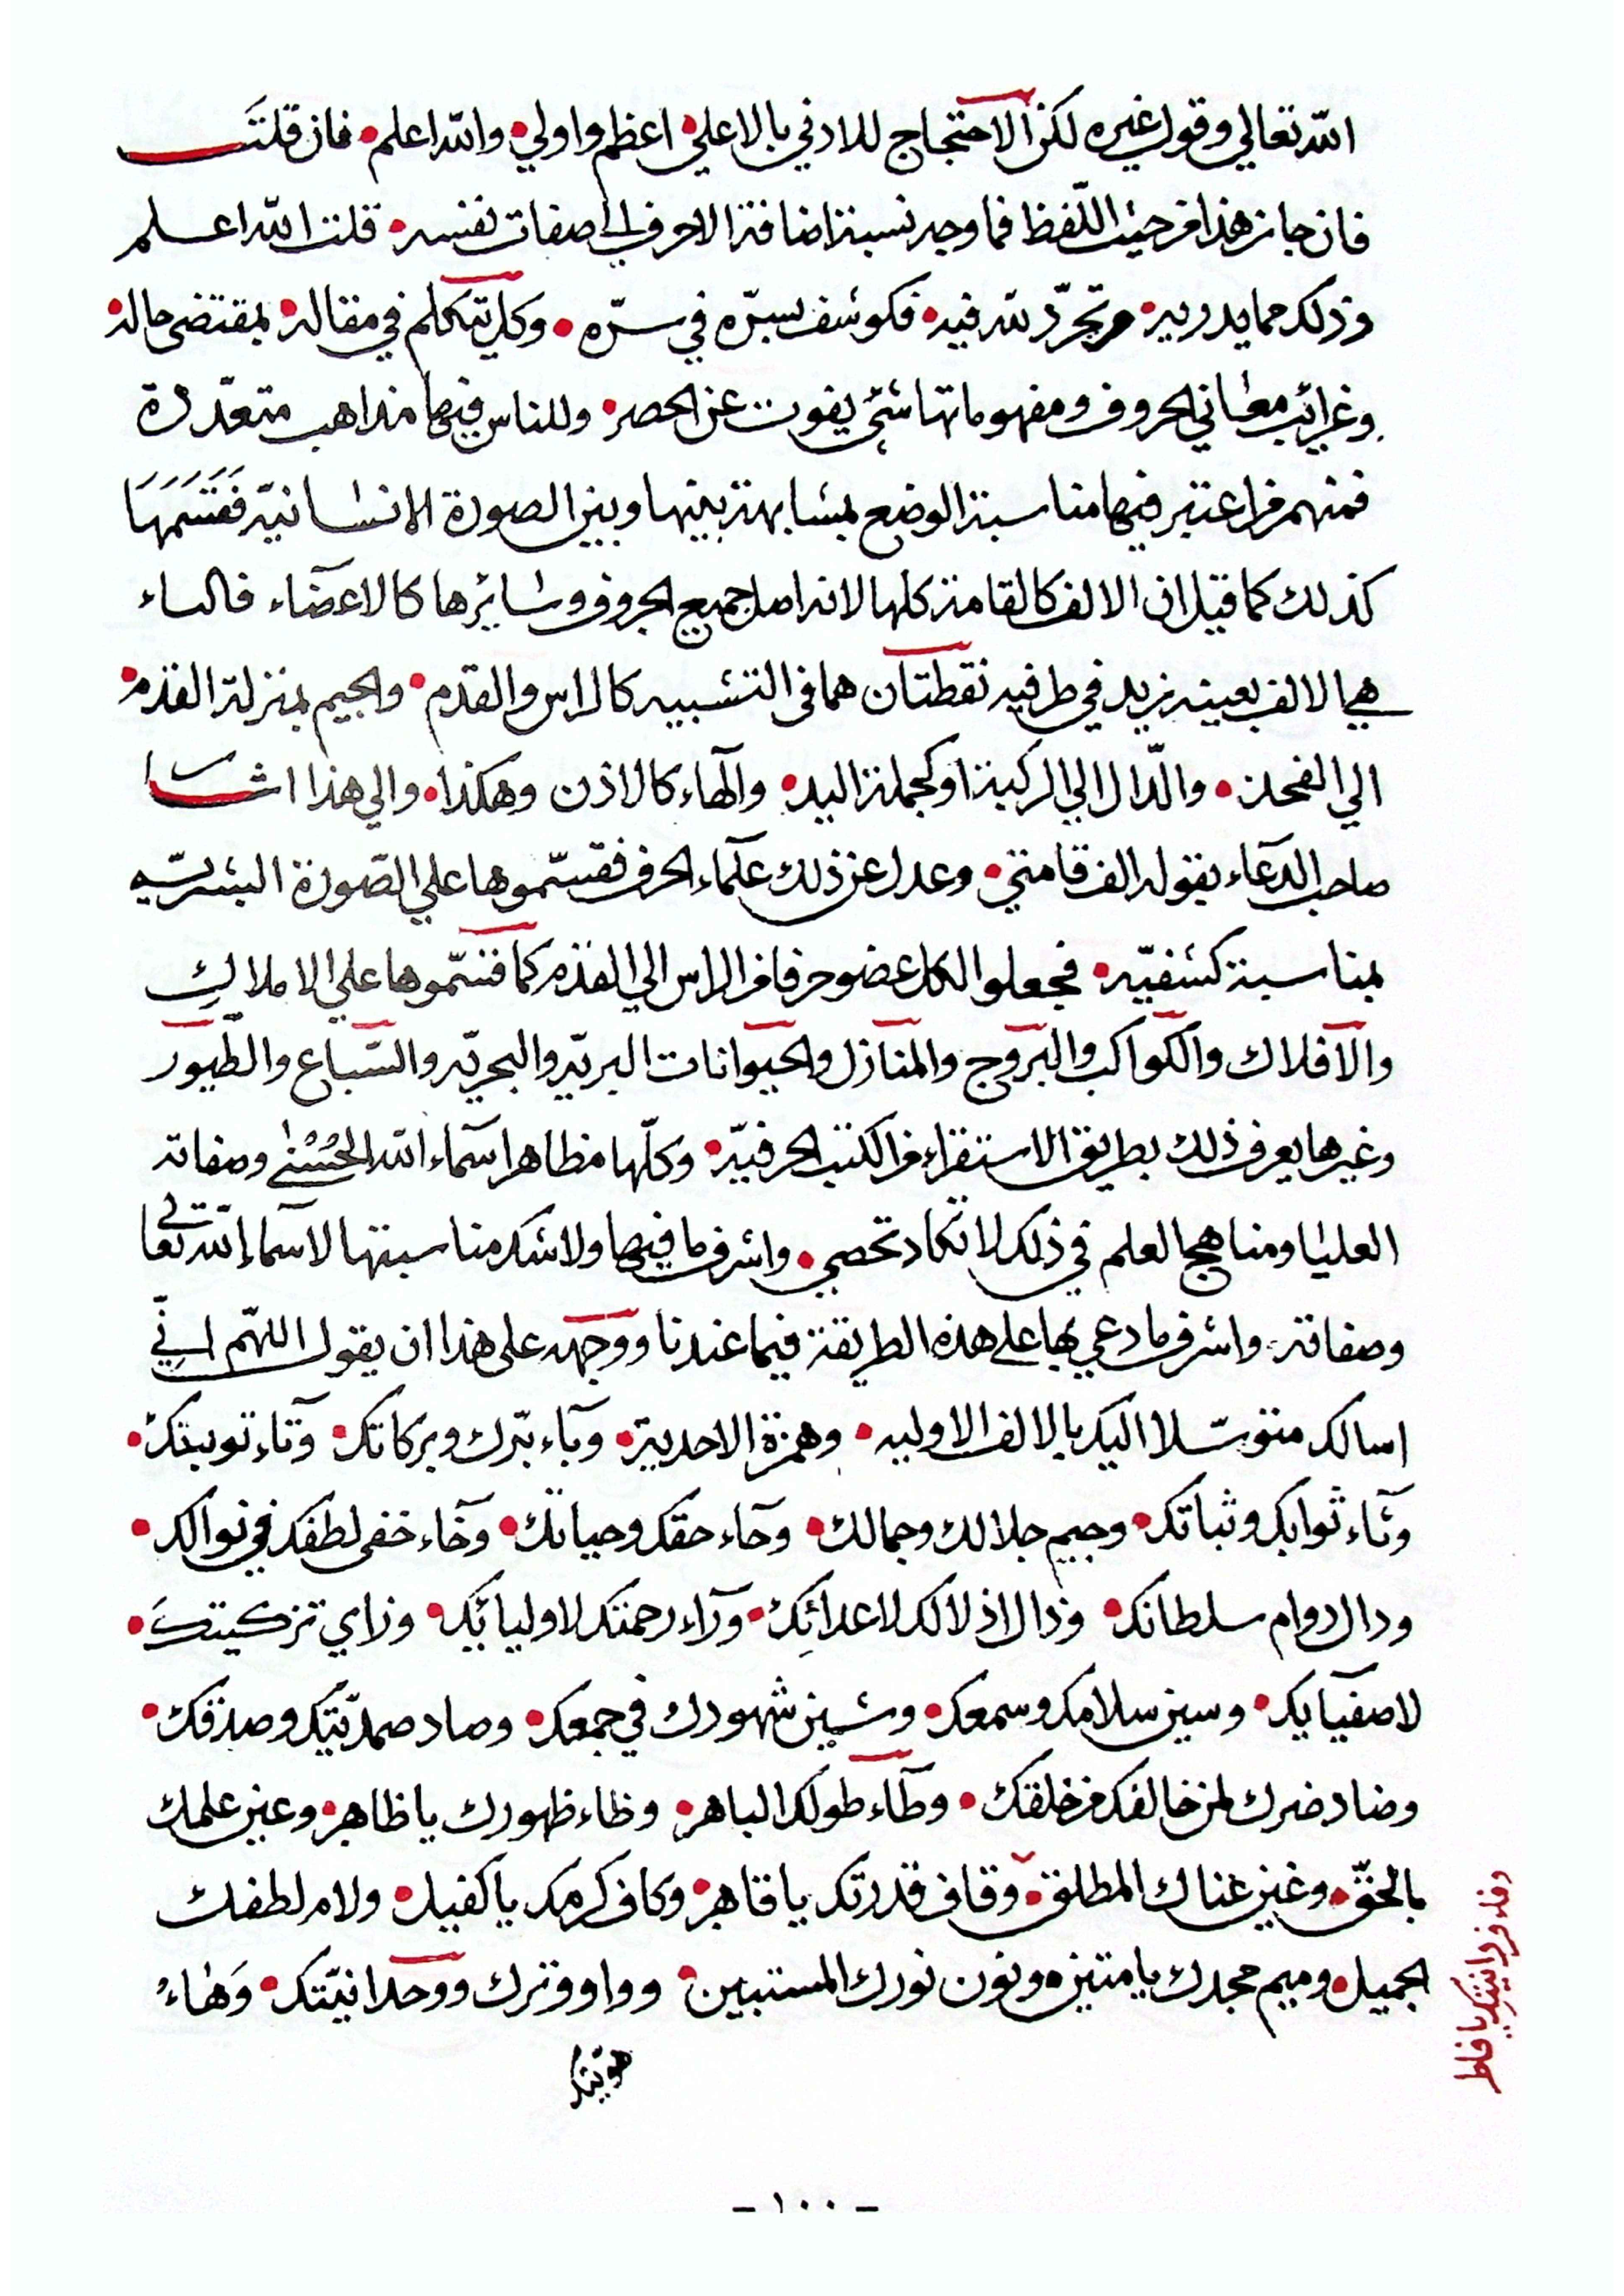 الله تعالي وقول غيره لكن الاحتجاج للادني بالاعلي اعظم واولي • والله اعلم • فان قلت
فان جاز هذا من حيث اللفظ فما وجه نسبة اضافة الاحرف الى صفات نفسه • قلت الله اعلم
وذلك مما يدري به من تجرّد لله فيه • فكوشف بسرّه في سرّه • وكل يتكلم في مقاله • بمقتضى حاله •
وغرائب معاني الحروف ومفهوماتها شيء يفوت عن الحصر • وللناس فيها مذاهب متعدّدة
فمنهم من اعتبر فيها مناسبة الوضع بمشابهة بينها وبين الصورة الانسانيّه فَقَسَمَهَا
كذلك كما قيل ان الالف كالقامة كلها لانه اصل جميع الحروف وسايرها كالاعضاء فالباء
هي الالف بعينه زيد في طرفيه نقطتان هما في التشبيه كالراس والقدم • والجيم بمنزلة القدم •
الي الفخذ • والدّال الي الركبة او كجملة اليد • والهاء كالاذن وهكذا • والي هذا اشار
صاحب الدعاء بقوله الف قامتي • وعدل عن ذلك علماء الحرف فقسّموها علي الصّورة البشريّه
بمناسبة كشفيّه • فجعلوا لكل عضو حرفا من الراس الي القدم كما قسّموها علي الاملاك
والافلاك والكواكب والبروج والمنازل والحيوانات البريّه والبحريّه والسّباع والطّيور
وغيرها يعرف ذلك بطريق الاستقراء من الكتب الحرفيّه • وكلّها مظاهر اسماء الله الحُسْنى وصفاته
العليا ومناهج العلم في ذلك لا تكاد تحصي • واشرف ما فيها ولا شك مناسبتها لاسماء الله تعالي
وصفاته • واشرف ما دعي بها على هذه الطريقة فيما عندنا ووجهه على هذا ان يقول اللهمّ انِّي
اسالك متوسّلا اليك بالالف الاوليه • وهمزة الاحدية • وباء برّك وبركاتك • وتاء توبتك •
وثاء ثوابك وثباتك • وجيم جلالك وجمالك • وحاء حقك وحياتك • وخاء خفى لطفك في نوالك •
ودال دوام سلطانك • وذال اذلالك لاعدائِك • وراء رحمتك لاوليائك • وزاي تزكيتك •
لاصفيايك • وسين سلامك وسمعك • وشين شهودك في جمعك • وصاد صمديّتك وصدقك •
وضاد ضرك لمن خالفك من خلقك • وطاء طولك الباهر • وظاء ظهورك يا ظاهر • وعين علمك
بالحقّ • وغين غناك المطلق • وقاف قدرتك يا قاهر • وكاف كرمك يا كفيل • ولام لطفك
الجميل • وميم مجدك يا متين • ونون نورك المستبين • وواو وترك ووحدانيّتك • وَهاء
هويتك
وفاء فردانيتك يا فاطر
- ١٠٠ -